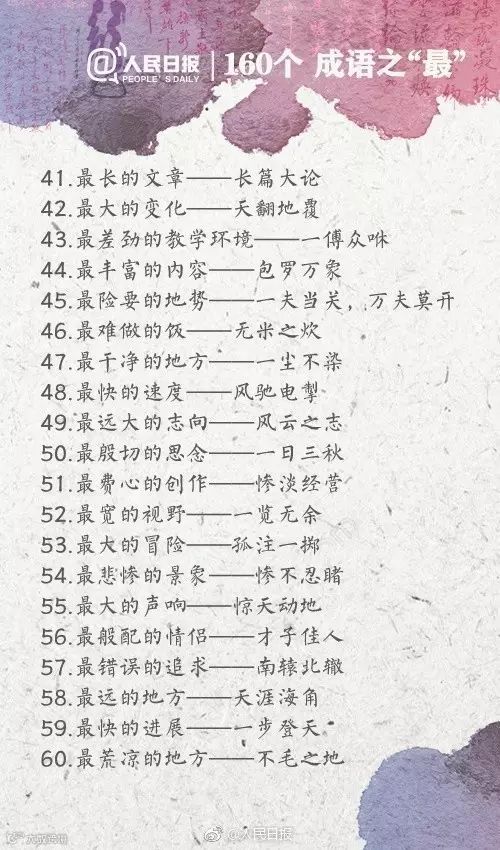 @人民日报 PEOPLE'S DAILY | 160个 成语之“最”
41.最长的文章——长篇大论
42.最大的变化——天翻地覆
43.最差劲的教学环境——一傅众咻
44.最丰富的内容——包罗万象
45.最险要的地势——一夫当关，万夫莫开
46.最难做的饭——无米之炊
47.最干净的地方——一尘不染
48.最快的速度——风驰电掣
49.最远大的志向——风云之志
50.最殷切的思念——一日三秋
51.最费心的创作——惨淡经营
52.最宽的视野——一览无余
53.最大的冒险——孤注一掷
54.最悲惨的景象——惨不忍睹
55.最大的声响——惊天动地
56.最般配的情侣——才子佳人
57.最错误的追求——南辕北辙
58.最远的地方——天涯海角
59.最快的进展——一步登天
60.最荒凉的地方——不毛之地
@人民日报